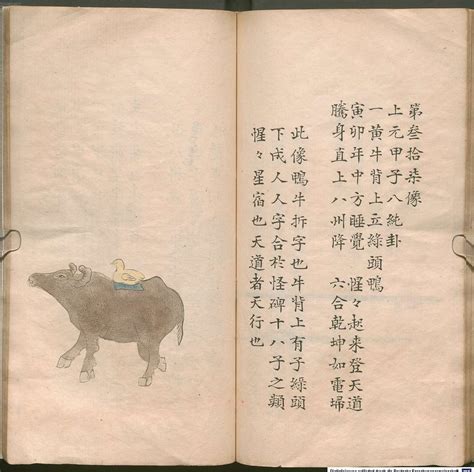 第叁拾柒像
上元甲子八純卦
一黃牛背上立綠頭鴨
寅卯年中方睡覺　惺々起來登天道
騰身直上八州降　六合乾坤如電埽
此像鴨牛拆字也牛背上有子綠頭
下成人人字合於怪碑十八子之類
惺々星宿也天道者天行也